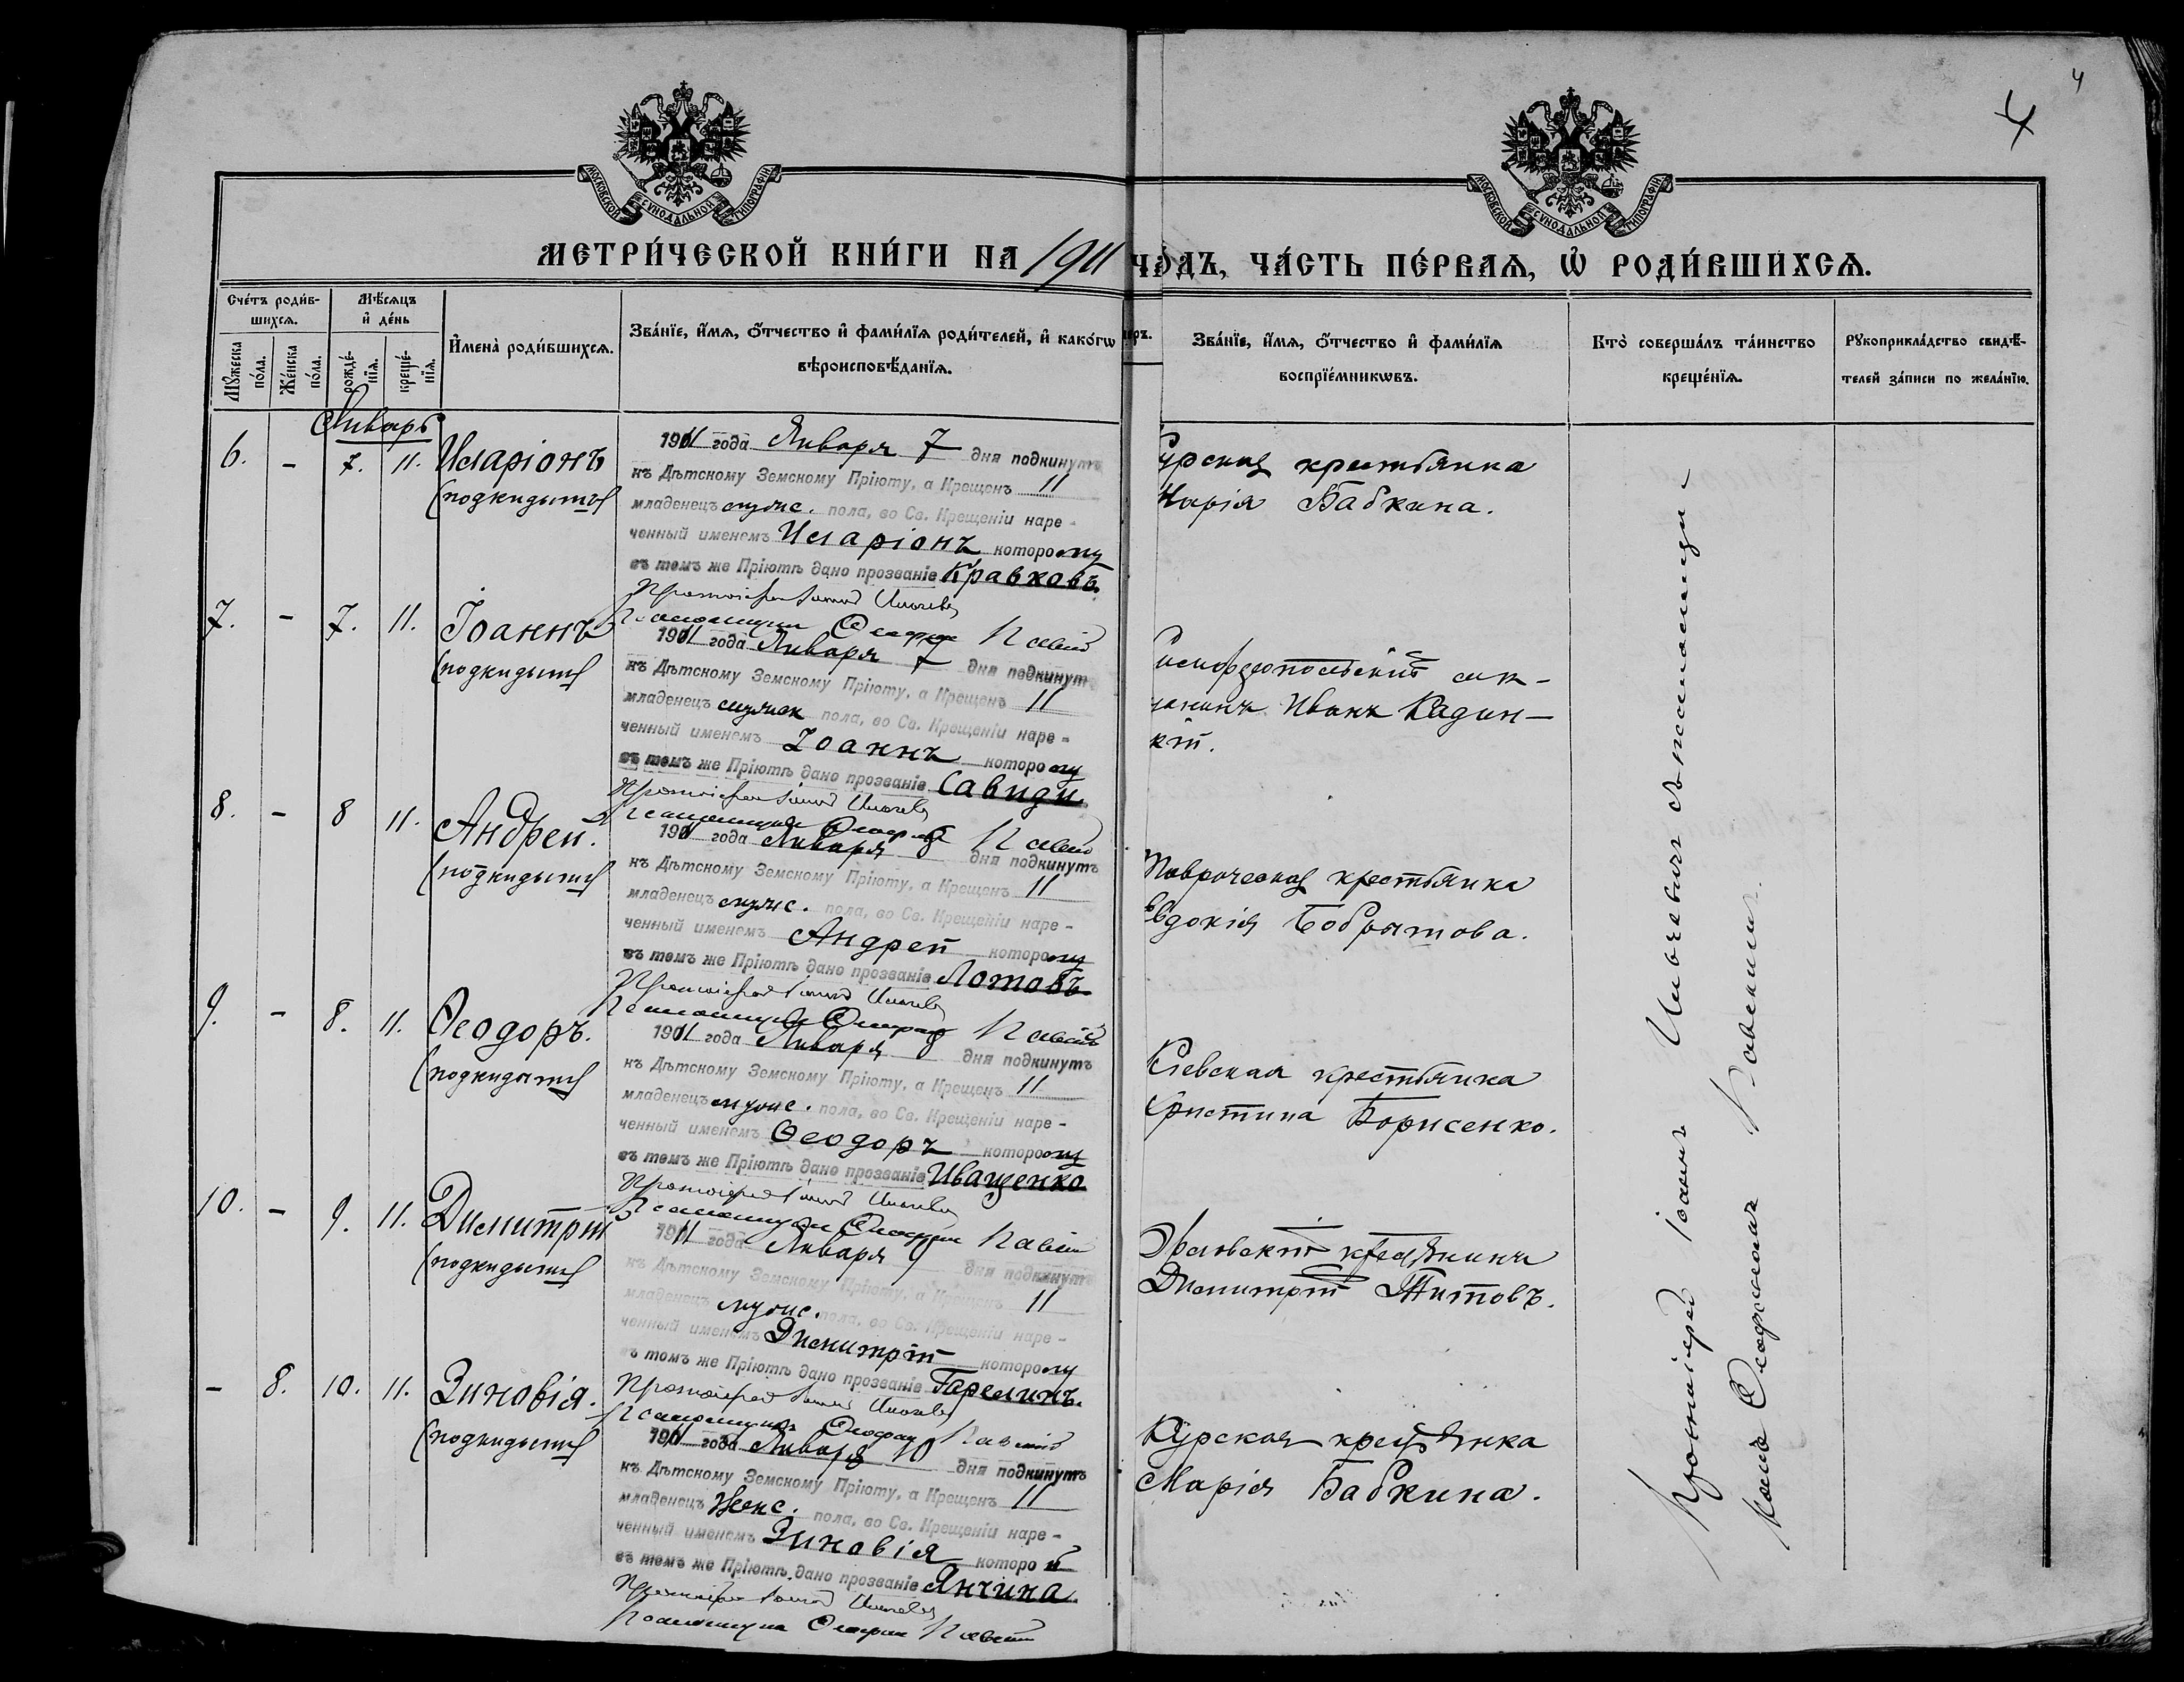 4
4
МОСКОВСКОЙ СУНОДАЛЬНОЙ ТИПОГРАФІИ
МОСКОВСКОЙ СУНОДАЛЬНОЙ ТИПОГРАФІИ
МЕТРИ́ЧЕСКОЙ КНИ́ГИ НА 1911 ГО́ДЪ, ЧА́СТЬ ПЕ́РВАѦ, Ѡ҆ РОДИ́ВШИХСѦ.
Сче́тъ роди́в-
шихсѧ.
Мꙋжеска по́ла.
Же́нска по́ла.
Мѣ́сѧцъ
и҆ де́нь
рожде́-
нїѧ.
креще́-
нїѧ.
И҆мена̀ роди́вшихсѧ.
Зва́нїе, и҆́мѧ, ѻ҆́тчество и҆ фами́лїѧ роди́телей, и҆ како́гѡ
вѣроисповѣ́данїѧ.
Зва́нїе, и҆́мѧ, ѻ҆́тчество и҆ фами́лїѧ
воспрїе́мникѡвъ.
Кто̀ соверша́лъ та́инство
креще́нїѧ.
Рꙋкоприкла́дство свидѣ́-
телей за́писи по жела́нїю.
Январь
6. - 7. 11. Иларіонъ
(подкидышъ)
1911 года Января 7 дня подкинутъ
къ Дѣтскому Земскому Пріюту, а Крещенъ 11
младенецъ мужс. пола, во Св. Крещеніи наре-
ченный именемъ Иларіонъ которому
въ томъ же Пріютѣ дано прозваніе Кравковъ.
Протоіерей Іоаннъ
Псаломщикъ
Курская крестьянка
Марія Бабкина.
7. - 7. 11. Іоаннъ
(подкидышъ)
1911 года Января 7 дня подкинутъ
къ Дѣтскому Земскому Пріюту, а Крещенъ 11
младенецъ мужск пола, во Св. Крещеніи наре-
ченный именемъ Іоаннъ которому
въ томъ же Пріютѣ дано прозваніе Савиди.
Протоіерей Іоаннъ
Псаломщикъ
Симферопольскій мѣ-
щанинъ Иванъ
8. - 8 11. Андрей.
(подкидышъ)
1911 года Января 8 дня подкинутъ
къ Дѣтскому Земскому Пріюту, а Крещенъ 11
младенецъ мужс. пола, во Св. Крещеніи наре-
ченный именемъ Андрей которому
въ томъ же Пріютѣ дано прозваніе Лотовъ.
Протоіерей Іоаннъ
Псаломщикъ
Таврическая крестьянка
Евдокія
9. - 8. 11. Ѳеодоръ.
(подкидышъ)
1911 года Января 8 дня подкинутъ
къ Дѣтскому Земскому Пріюту, а Крещенъ 11
младенецъ мужс. пола, во Св. Крещеніи наре-
ченный именемъ Ѳеодоръ которому
въ томъ же Пріютѣ дано прозваніе Иващенко
Протоіерей Іоаннъ
Псаломщикъ
Кіевская крестьянка
Христина Борисенко.
10. - 9. 11. Димитрій
(подкидышъ)
1911 года Января 9 дня подкинутъ
къ Дѣтскому Земскому Пріюту, а Крещенъ 11
младенецъ мужс. пола, во Св. Крещеніи наре-
ченный именемъ Димитрій которому
въ томъ же Пріютѣ дано прозваніе Гарелинъ.
Протоіерей Іоаннъ
Псаломщикъ
Орловскій крестьянинъ
Димитрій Титовъ.
- 8. 10. 11. Зиновія.
(подкидышъ)
1911 года Января 10 дня подкинутъ
къ Дѣтскому Земскому Пріюту, а Крещенъ 11
младенецъ женс. пола, во Св. Крещеніи наре-
ченный именемъ Зиновія которой
въ томъ же Пріютѣ дано прозваніе Янчина.
Протоіерей Іоаннъ
Псаломщикъ
Курская крестьянка
Марія Бабкина.
Протоіерей Іоаннъ съ псаломщи-
комъ